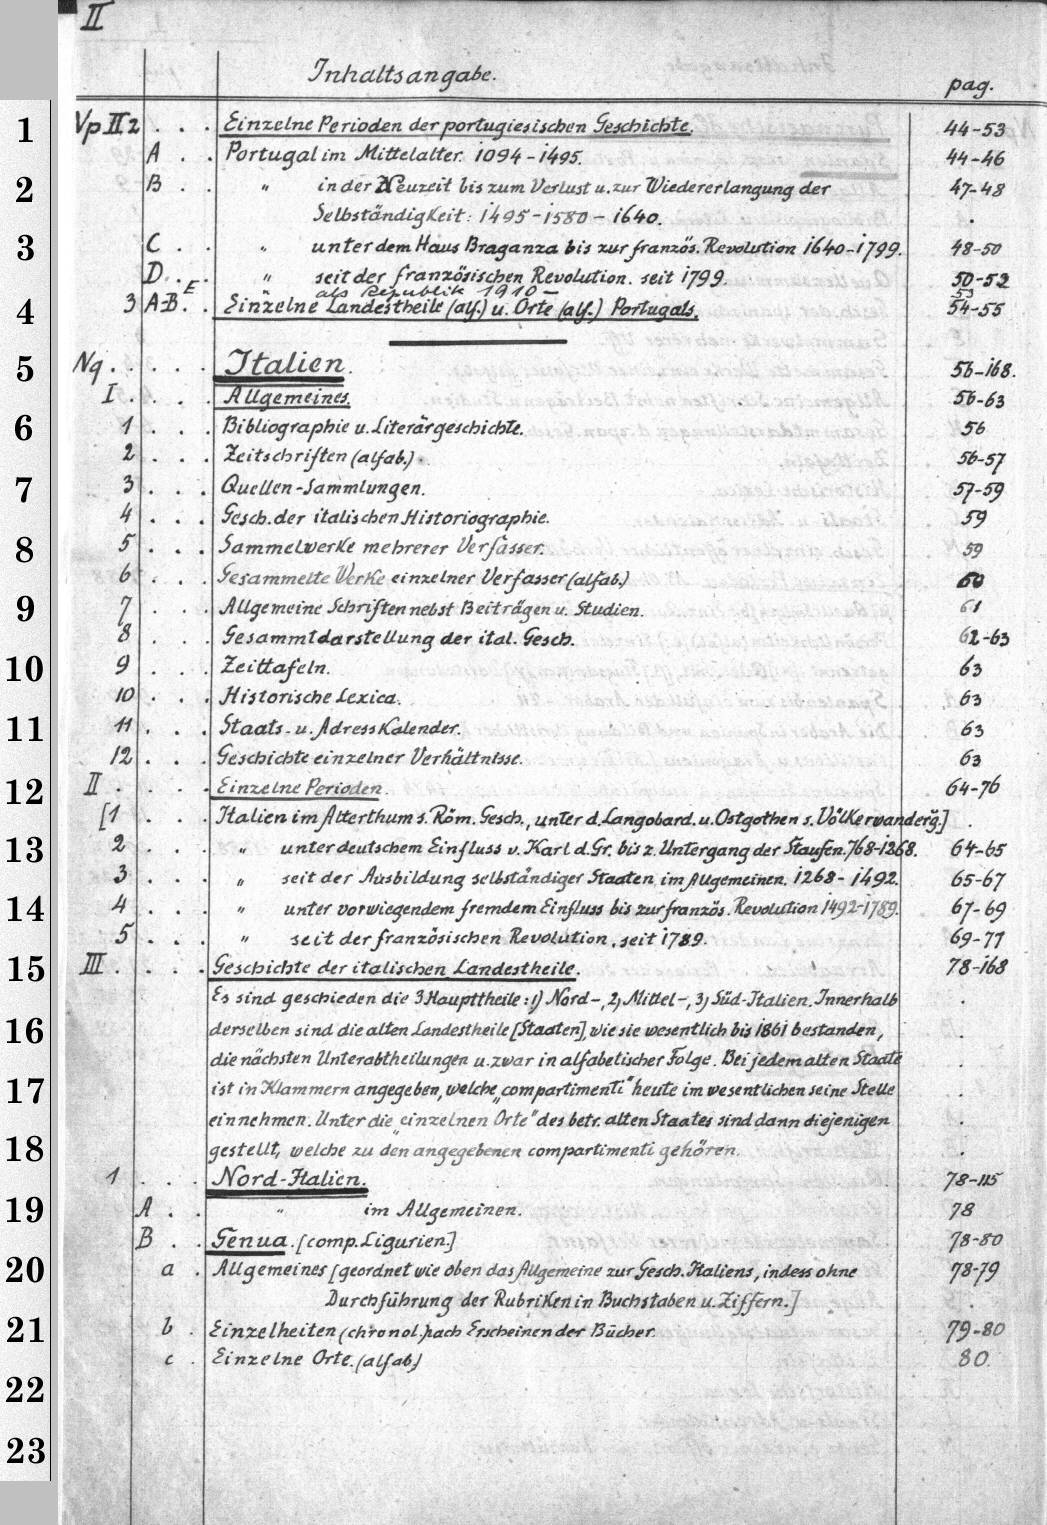 II
Inhaltsangabe. pag.
1 Vp II 2 . . . Einzelne Perioden der portugiesischen Geschichte. 44-53
A . . Portugal im Mittelalter. 1094-1495. 44-46
2 B . . " in der Neuzeit bis zum Verlust u. zur Wiedererlangung der 47-48
Selbständigkeit: 1495-1580-1640. .
3 C . . " unter dem Haus Braganza bis zur französ. Revolution 1640-1799. 48-50
D . . " seit der französischen Revolution. seit 1799. 50-52
E " als Republik 1910- 53
4 3 A-B . . Einzelne Landestheile (alf.) u. Orte (alf.) Portugals. 54-55
5 Nq . . . . . Italien. 56-168.
I . . . . Allgemeines. 56-63
6 1 . . . Bibliographie u. Literärgeschichte. 56
2 . . . Zeitschriften (alfab.) 56-57
7 3 . . . Quellen-Sammlungen. 57-59
4 . . . Gesch. der italischen Historiographie. 59
8 5 . . . Sammelwerke mehrerer Verfasser. 59
6 . . . Gesammelte Werke einzelner Verfasser (alfab.) 60
9 7 . . . Allgemeine Schriften nebst Beiträgen u. Studien. 61
8 . . . Gesammtdarstellung der ital. Gesch. 62-63
10 9 . . . Zeittafeln. 63
10 . . . Historische Lexica. 63
11 11 . . . Staats- u. Adresskalender. 63
12 . . . Geschichte einzelner Verhältnisse. 63
12 II . . . . Einzelne Perioden. 64-76
[1 . . . Italien im Alterthum s. Röm. Gesch., unter d. Langobard. u. Ostgothen s. Völkerwanderg.] .
13 2 . . . " unter deutschem Einfluss v. Karl d. Gr. bis z. Untergang der Staufen. 768-1268. 64-65
3 . . . " seit der Ausbildung selbständiger Staaten im Allgemeinen. 1268-1492. 65-67
14 4 . . . " unter vorwiegendem fremdem Einfluss bis zur französ. Revolution 1492-1789. 67-69
5 . . . " seit der französischen Revolution, seit 1789. 69-77
15 III . . . . Geschichte der italischen Landestheile. 78-168
Es sind geschieden die 3 Haupttheile: 1) Nord-, 2) Mittel-, 3) Süd-Italien. Innerhalb .
16 derselben sind die alten Landestheile [Staaten], wie sie wesentlich bis 1861 bestanden, .
die nächsten Unterabtheilungen u. zwar in alfabetischer Folge. Bei jedem alten Staate .
17 ist in Klammern angegeben, welche „compartimenti" heute im wesentlichen seine Stelle .
einnehmen. Unter die „einzelnen Orte" des betr. alten Staates sind dann diejenigen .
18 gestellt, welche zu den angegebenen compartimenti gehören. .
1 . . . Nord-Italien. 78-115
19 A . . " im Allgemeinen. 78
B . . Genua. [comp. Ligurien.] 78-80
20 a . Allgemeines [geordnet wie oben das Allgemeine zur Gesch. Italiens, indess ohne 78-79
Durchführung der Rubriken in Buchstaben u. Ziffern.] .
21 b . Einzelheiten (chronol.) nach Erscheinen der Bücher. 79-80
c . Einzelne Orte. (alfab.) 80.
22
23